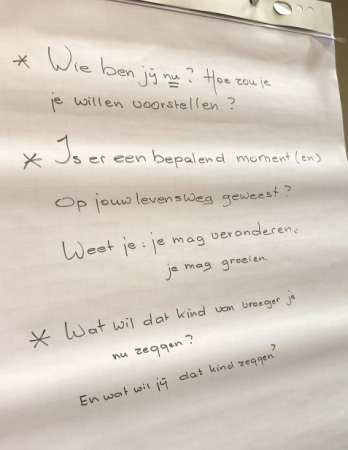 * Wie ben jÿ nu? Hoe zou je
je willen voorstellen?
* Is er een bepalend moment (en)
op jouw levensweg geweest?
Weet je: je mag veranderen.
je mag groeien.
* Wat wil dat kind van vroeger je
nu zeggen?
En wat wil jÿ dat kind zeggen?